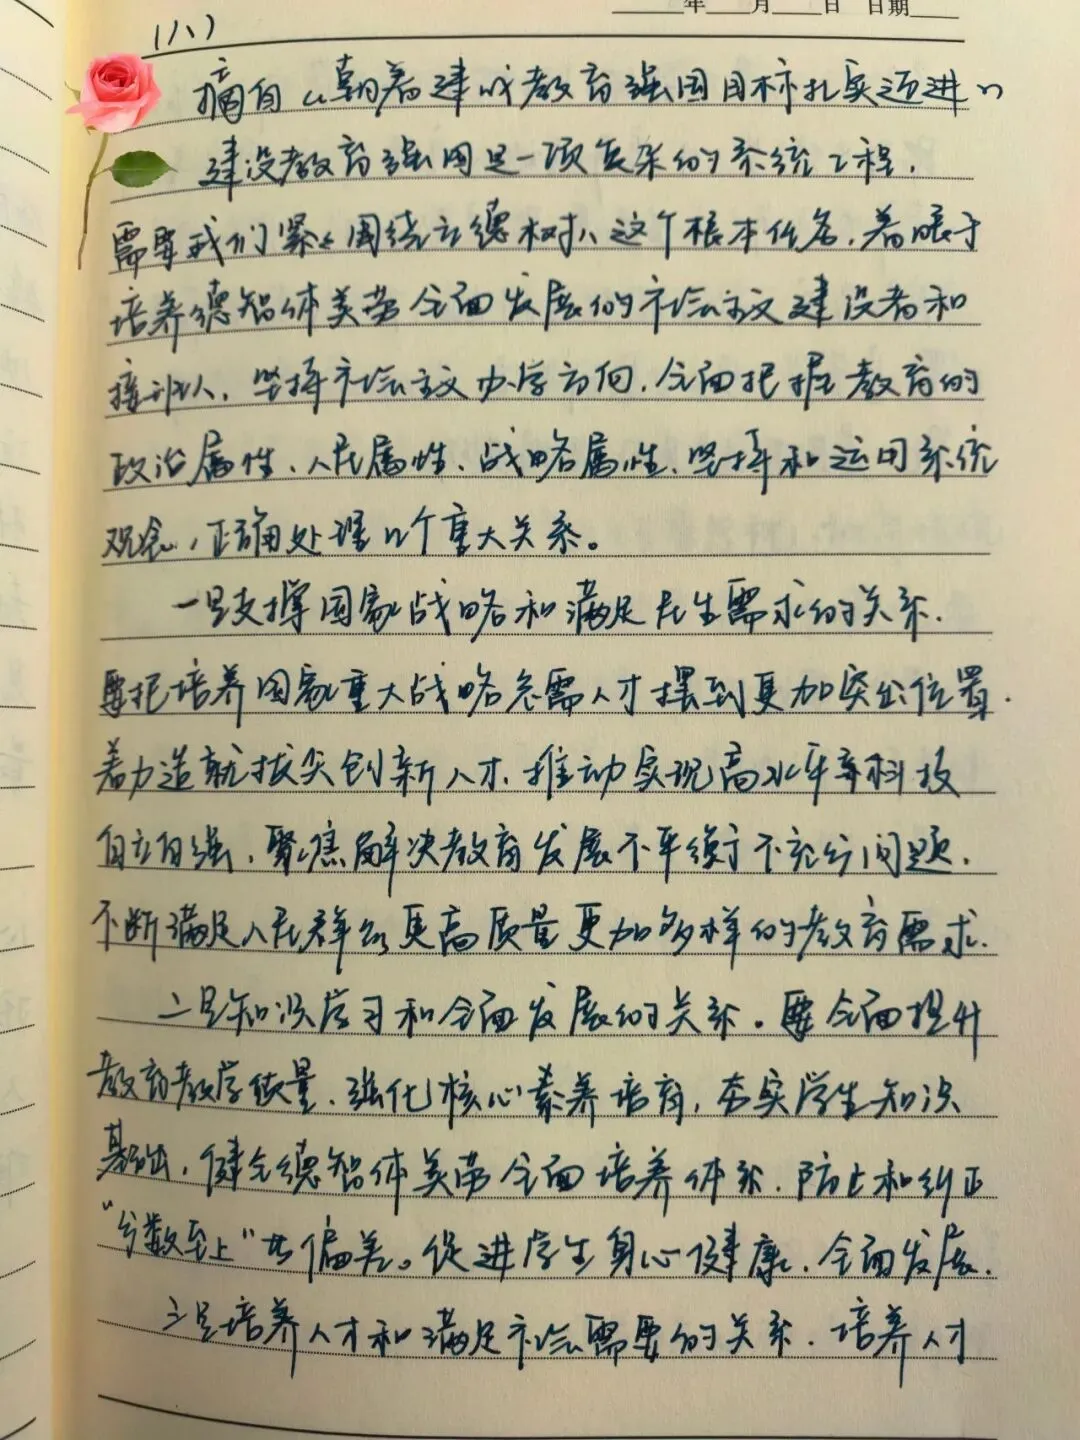 年 月 日 日期
（八）
摘自《朝着建成教育强国目标扎实迈进》
建设教育强国是一项复杂的系统工程，
需要我们紧紧围绕立德树人这个根本任务，着眼于
培养德智体美劳全面发展的社会主义建设者和
接班人，坚持社会主义办学方向，全面把握教育的
政治属性、人民属性、战略属性，坚持和运用系统
观念，正确处理几个重大关系。
一是支撑国家战略和满足民生需求的关系，
要把培养国家重大战略急需人才摆到更加突出位置，
着力造就拔尖创新人才，推动实现高水平科技
自立自强，聚焦解决教育发展不平衡不充分问题，
不断满足人民群众更高质量更加多样的教育需求。
二是知识学习和全面发展的关系。要全面提升
教育教学质量，强化核心素养培育，夯实学生知识
基础，健全德智体美劳全面培养体系，防止和纠正
“分数至上”等偏差。促进学生身心健康、全面发展。
三是培养人才和满足社会需要的关系，培养人才